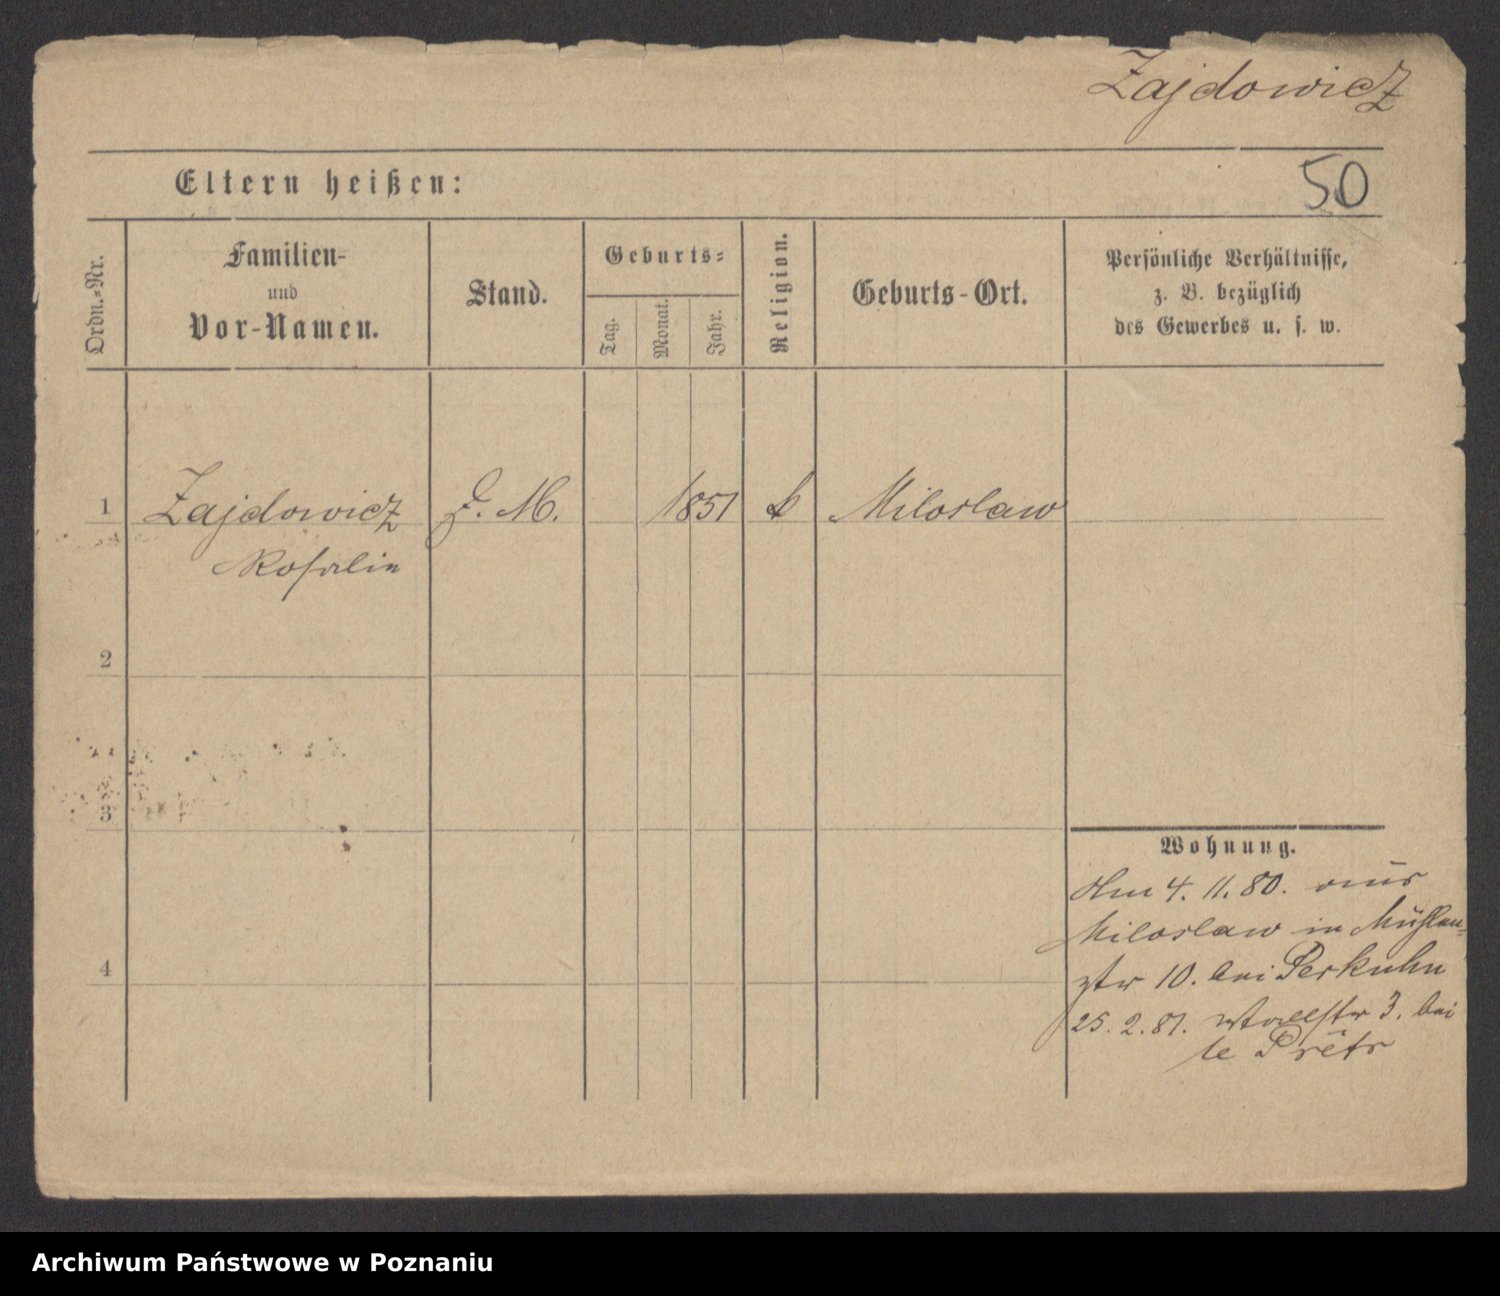 Zajdowicz
Eltern heißen:
50
Ordn.=Nr.
Familien-
und
Vor-Namen.
Stand.
Geburts=
Tag.
Monat.
Jahr.
Religion.
Geburts-Ort.
Persönliche Verhältnisse,
z. B. bezüglich
des Gewerbes u. s. w.
1 Zajdowicz M. 1851 k Miloslaw
Rosalie
2
3
4
Wohnung.
Am 4. 11. 80. aus
Miloslaw in Mühlen=
str 10. bei Perkuhn
25. 2. 81. Wallstr 3. bei
le Prêtr
Archiwum Państwowe w Poznaniu